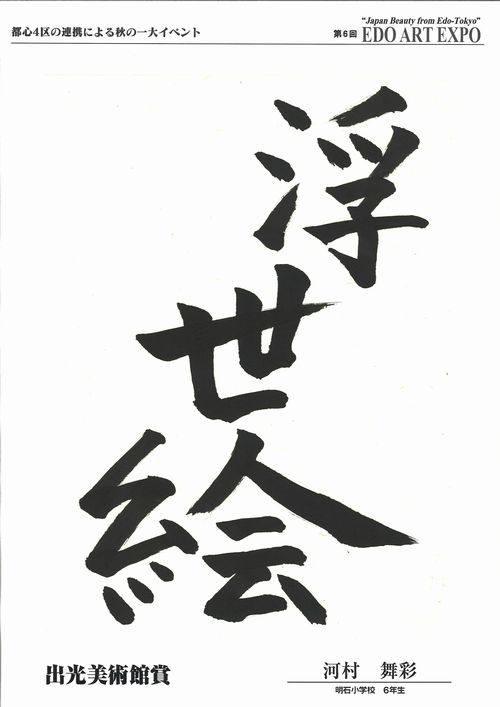 都心4区の連携による秋の一大イベント
"Japan Beauty from Edo-Tokyo"
第6回 EDO ART EXPO
浮世絵
出光美術館賞
河村 舞彩
明石小学校 6年生